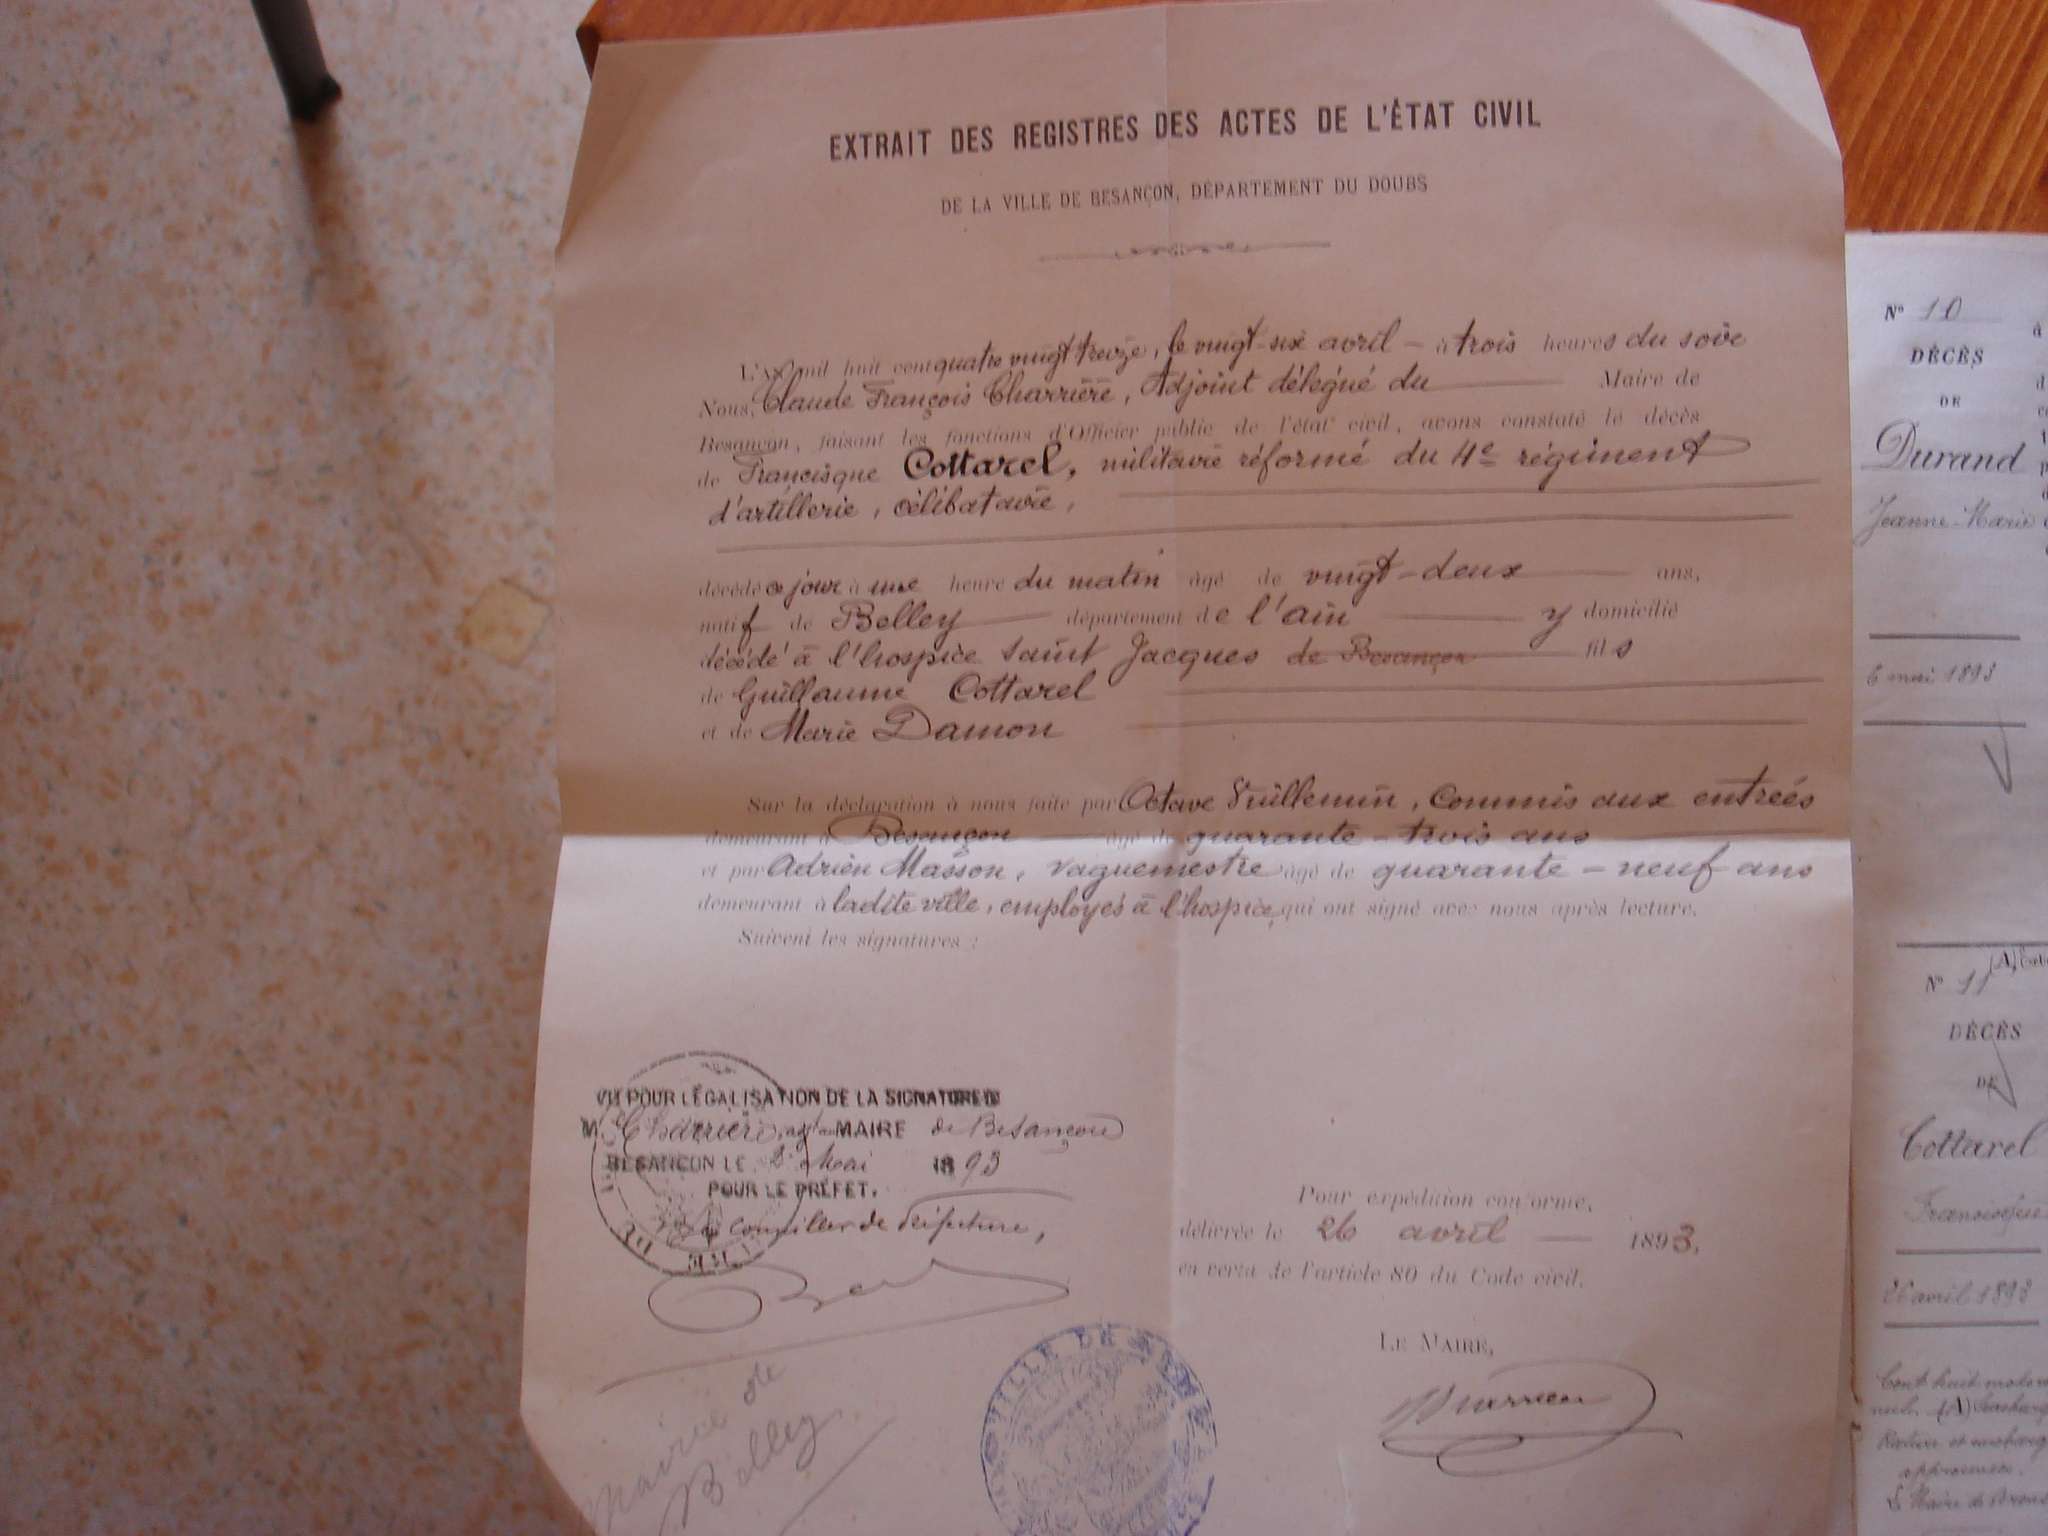 EXTRAIT DES REGISTRES DES ACTES DE L'ÉTAT CIVIL
DE LA VILLE DE BESANÇON, DÉPARTEMENT DU DOUBS
L'AN mil huit cent quatre vingt treize, le vingt-six avril - à trois heures du soir
Nous, Claude François Charrière, Adjoint délégué du Maire de
Besançon, faisant les fonctions d'Officier public de l'état civil, avons constaté le décès
de Francisque Cottarel, militaire réformé du 4e régiment
d'artillerie, célibataire,
décédé ce jour à une heure du matin âgé de vingt-deux ans,
natif de Belley département de l'ain y domicilié
décédé à l'hospice Saint Jacques de Besançon fils
de Guillaume Cottarel
et de Marie Damon
Sur la déclaration à nous faite par Octave Vuillemin, commis aux entrées
demeurant à Besançon âgé de quarante-trois ans
et par Adrien Masson, vaguemestre âgé de quarante-neuf ans
demeurant à ladite ville, employés à l'hospice, qui ont signé avec nous après lecture.
Suivent les signatures :
VU POUR LÉGALISATION DE LA SIGNATURE D
M. Charrière, adjt MAIRE de Besançon
BESANCON LE 2 Mai 1893
POUR LE PRÉFET.
Le Conseiller de Préfecture,
Pour expédition conforme,
délivrée le 26 avril 1893,
en vertu de l'article 80 du Code civil.
LE MAIRE,
Charrière
VILLE DE BESANÇON
Mairie de
Belley
N° 10
DÉCÈS
DE
Durand
Jeanne-Marie
6 mai 1893
N° 11
DÉCÈS
DE
Cottarel
Francisque
26 avril 1893